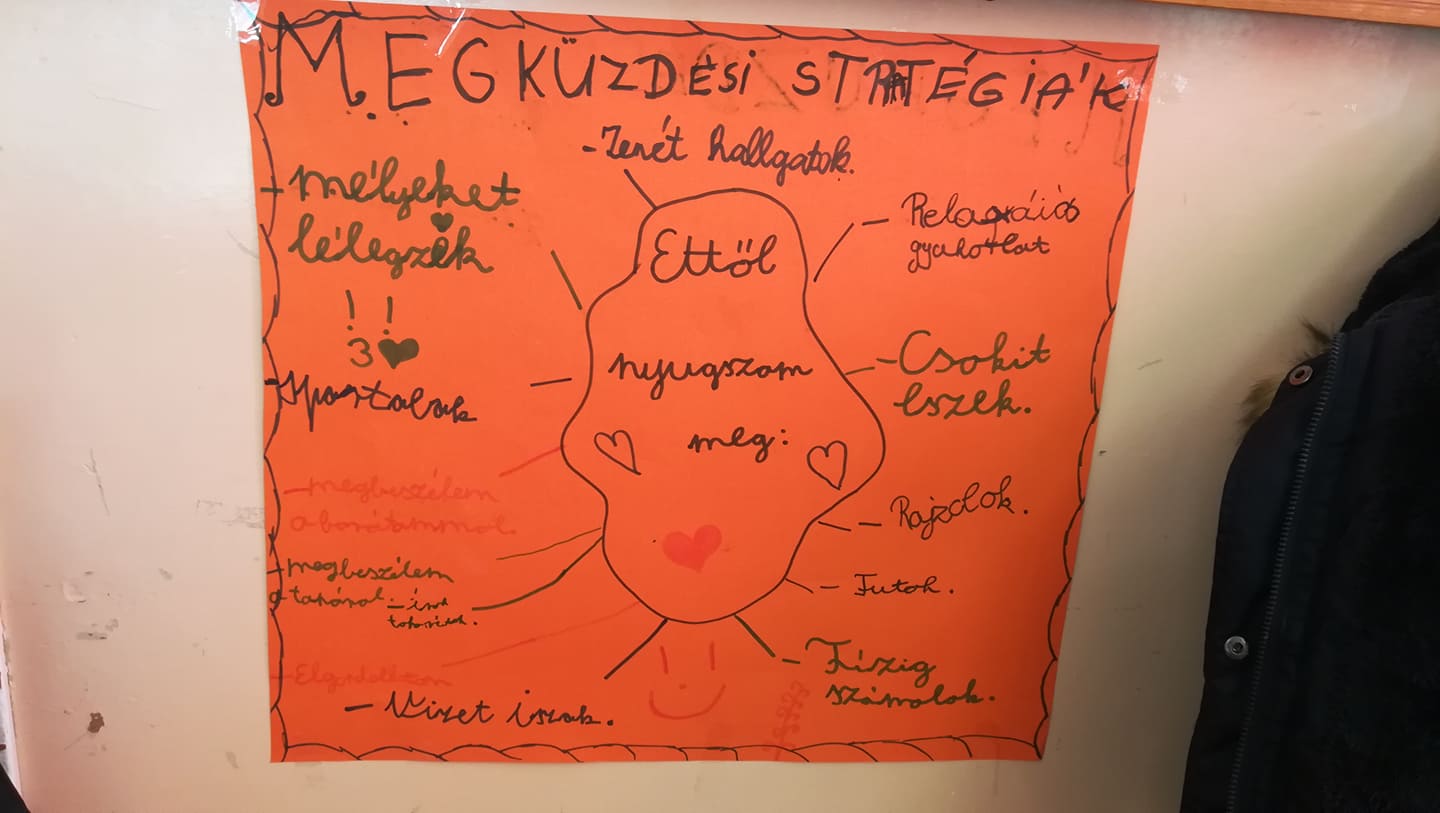 MEGKÜZDÉSI STRATÉGIÁK
-Zenét hallgatok.
-mélyeket
lélegzek
!!
3♥
-Sportolok
-megbeszélem
a barátammal.
-megbeszélem
a tanárral.
-írok
-Vizet iszok.
Ettől
nyugszom
meg:
-Relaxáció
gyakorlat
-Csokit
eszek.
-Rajzolok.
-Futok.
-Tízig
számolok.